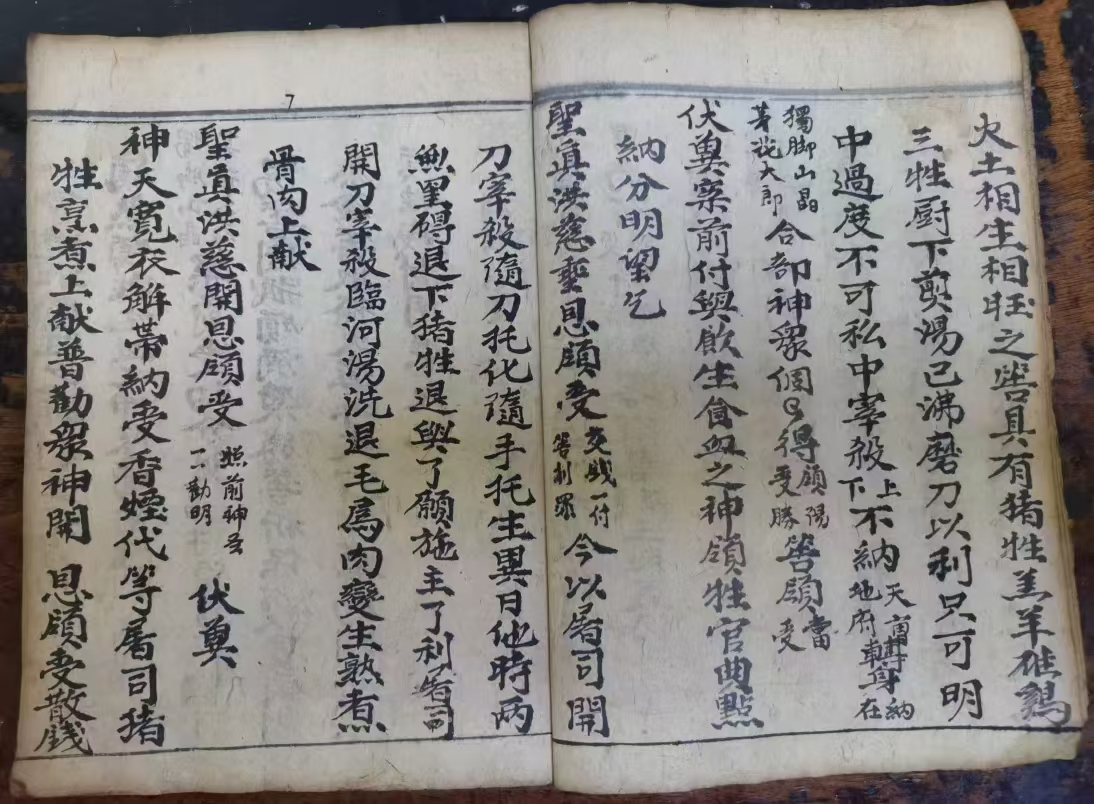 火土相生相旺之筶具有猪牲羔羊雄鷄
三牲厨下煎湯已沸磨刀以利只可明
中過度不可私中宰殺上下不納天 轉身納地府 在
獨脚山 茅 大郎合部神衆個〻得領 受勝陽筶領當受
伏奠案前付與飲生食血之神領牲官典點
納分明望乞
聖真洪慈垂恩領受交 一付筶 今以屠司開
刀宰殺隨刀托化隨手托生異日他時两
無里碍退下猪牲退與了願施主了利屠司
開刀宰殺臨河湯洗退毛爲肉變生熟煮
骨肉上献
聖真洪慈開恩領受照前神 一二勸明伏奠
神天寬衣解帶納受香煙代等屠司猪
牲烹煮上献普勸衆神開恩領受散錢
7